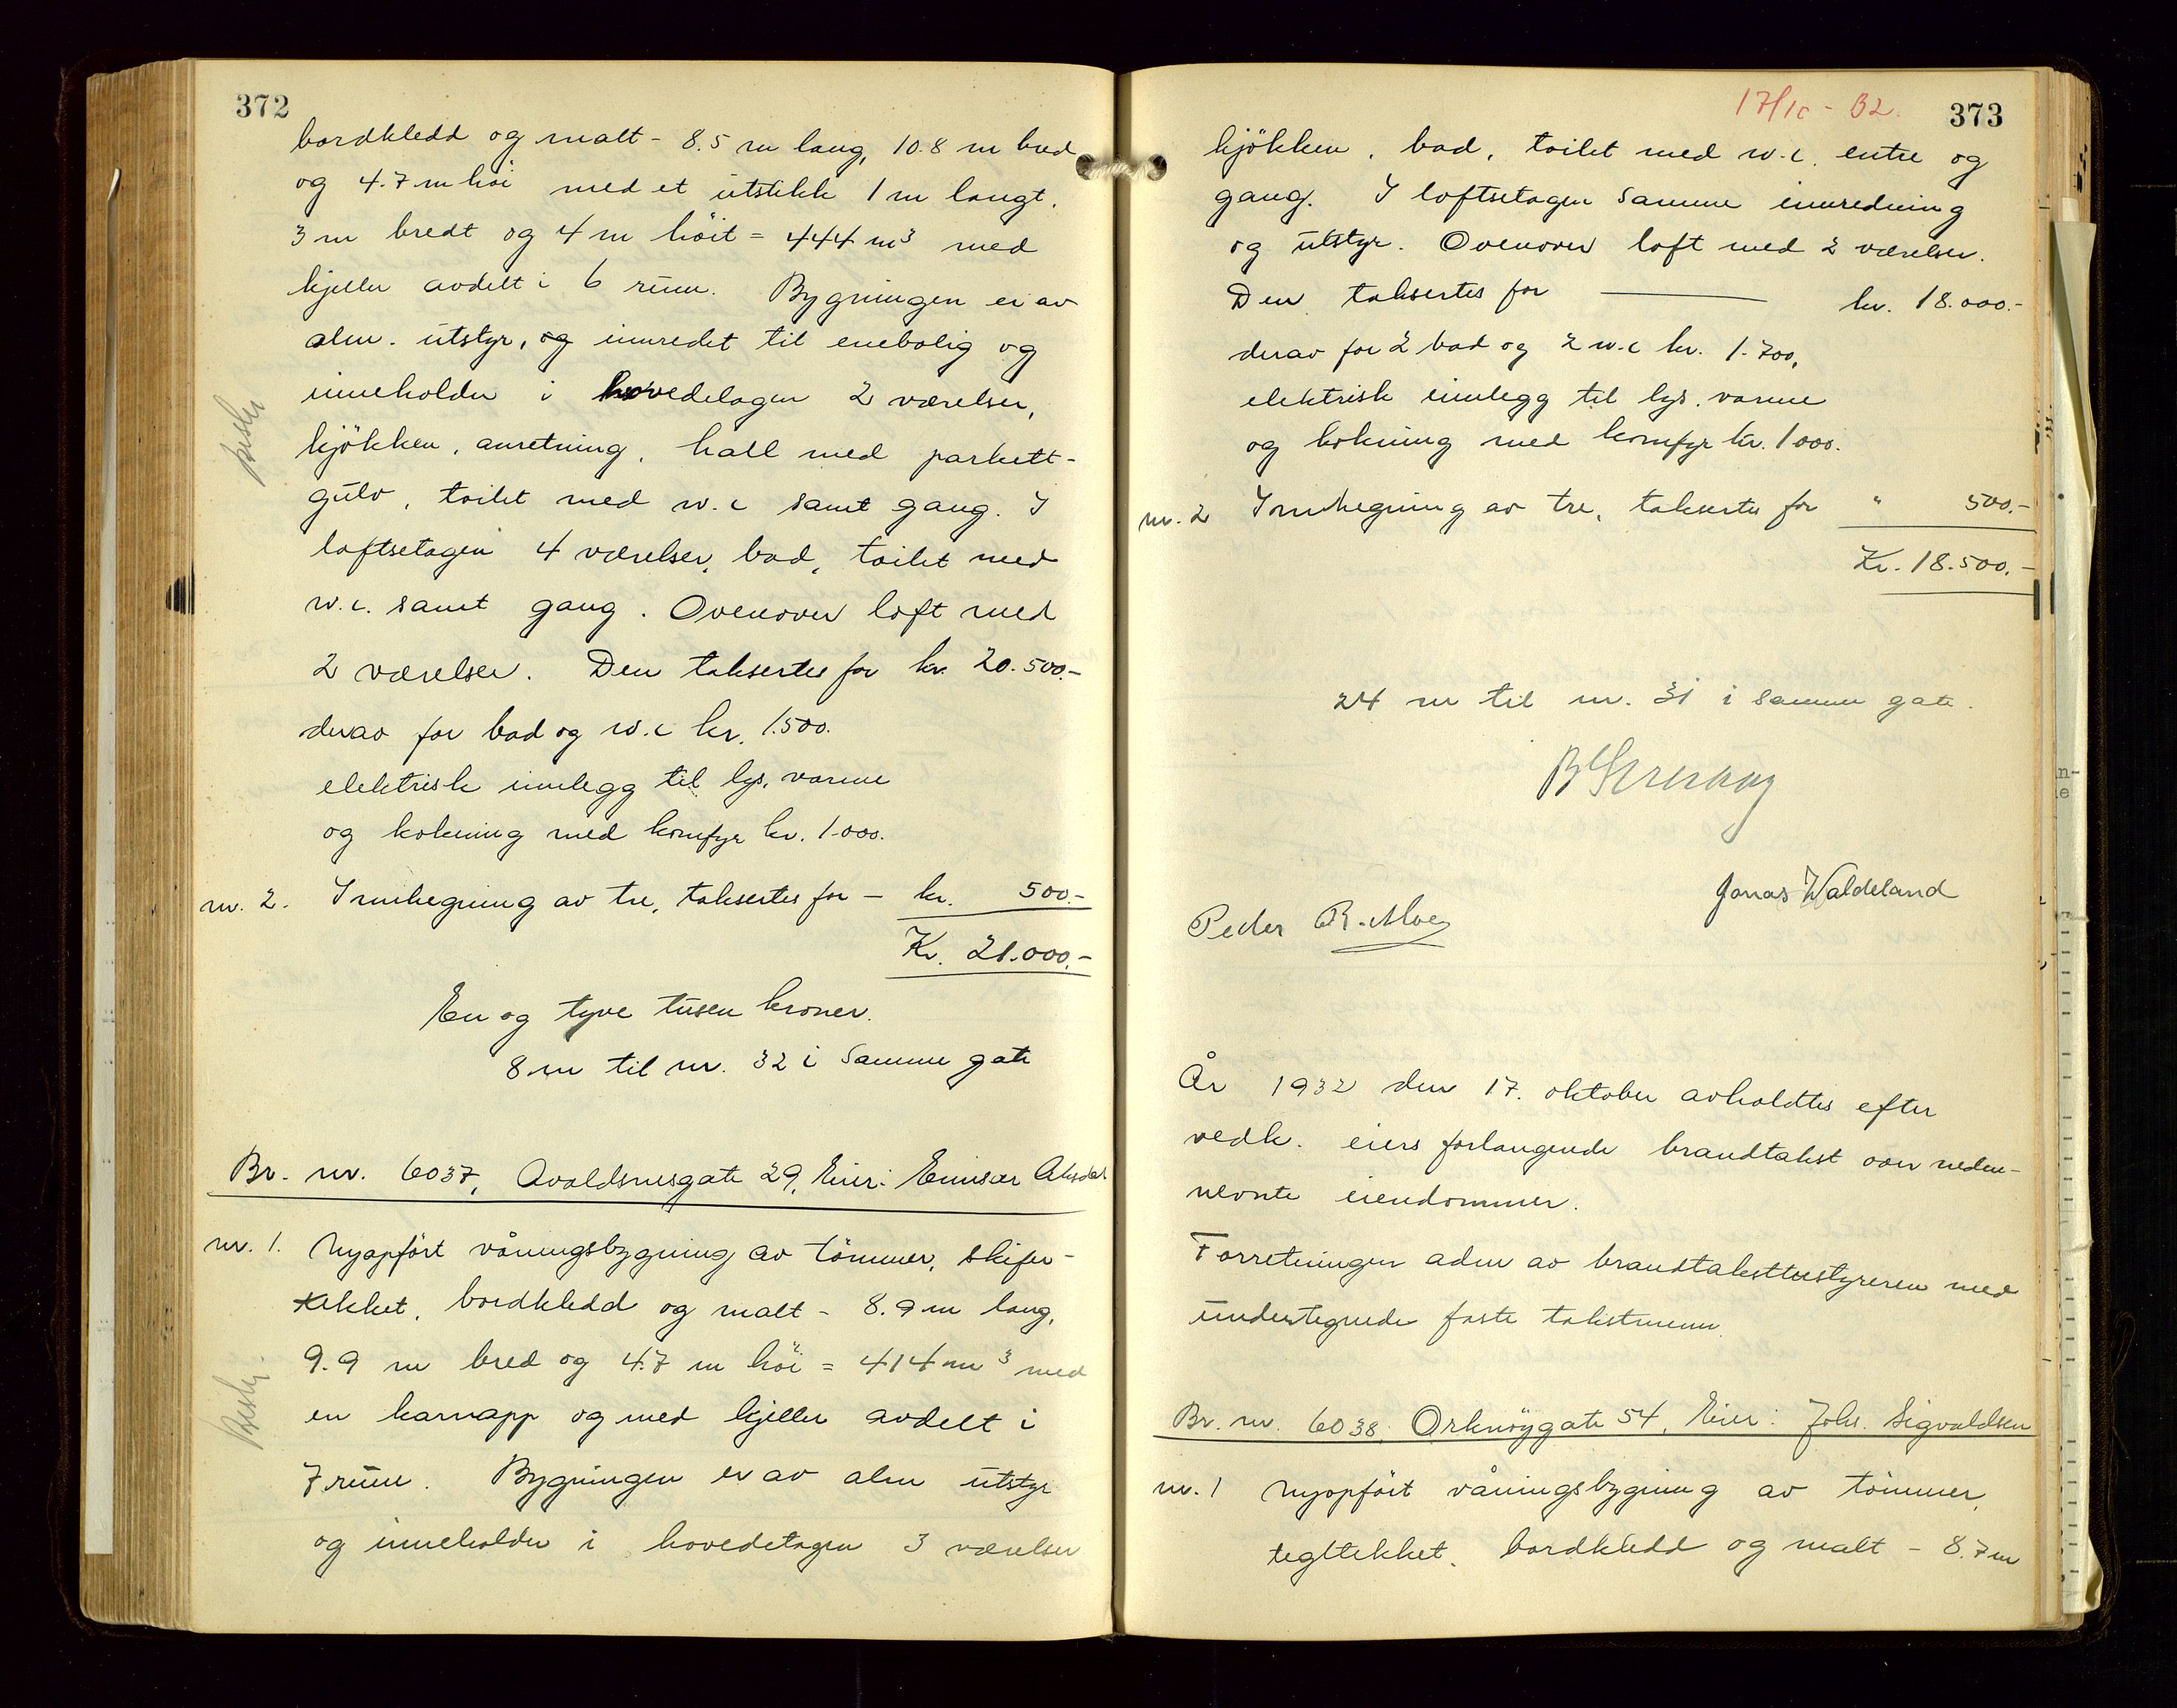 372
bordkledd og malt - 8.5 m lang, 10.8 m bred
og 4.7 m höi med et utstikk 1 m langt,
3 m bredt og 4 m höit = 444 m³ med
kjeller avdelt i 6 rum. Bygningen er av
alm. utstyr, og innredet til enebolig og
inneholder i hovedetagen 2 værelser,
kjökken, anretning, hall med parkett-
gulv, toilet med w.c samt gang. I
loftsetagen 4 værelser, bad, toilet med
w.c. samt gang. Ovenover loft med
2 værelser. Den taksertes for kr. 20.500.-
derav for bad og w.c kr. 1.500.
elektrisk innlegg til lys, varme
og kokning med komfyr kr. 1.000.
nr. 2. Innhegning av tre, taksertes for - kr. 500.-
Kr. 21.000.-
En og tyve tusen kroner.
8 m til nr. 32 i samme gate
Br. nr. 6037, Avaldsnesgate 29, Eier: Einar
nr. 1. Nyopfört våningsbygning av tömmer, skifer-
tekket, bordkledd og malt - 8.9 m lang,
9.9 m bred og 4.7 m höi = 414 m³ med
en karnapp og med kjeller avdelt i
7 rum. Bygningen er av alm utstyr
og inneholder i hovedetagen 3 værelser
17/10 - 32. 373
kjökken, bad, toilet med w.c. entre og
gang. I loftsetagen samme innredning
og utstyr. Ovenover loft med 2 værelser.
Den taksertes for kr. 18.000.-
derav for 2 bad og 2 w.c kr. 1.700,
elektrisk innlegg til lys, varme
og kokning med komfyr kr. 1000.
nr. 2 Innhegning av tre, taksertes for " 500.-
Kr. 18.500.-
24 m til nr. 31 i samme gate.
Jonas Waldeland
Peder R. Moe
År 1932 den 17. oktober avholdtes efter
vedk. eiers forlangende brandtakst over neden-
nevnte eiendommer.
Forretningen adm av brandtakstbestyreren med
undertegnede faste takstmenn.
Br. nr. 6038, Orknöygate 54, Eier: Johs. Sigvaldsen
nr. 1 Nyopfört våningsbygning av tömmer,
tegltekket, bordkledd og malt - 8.7 m